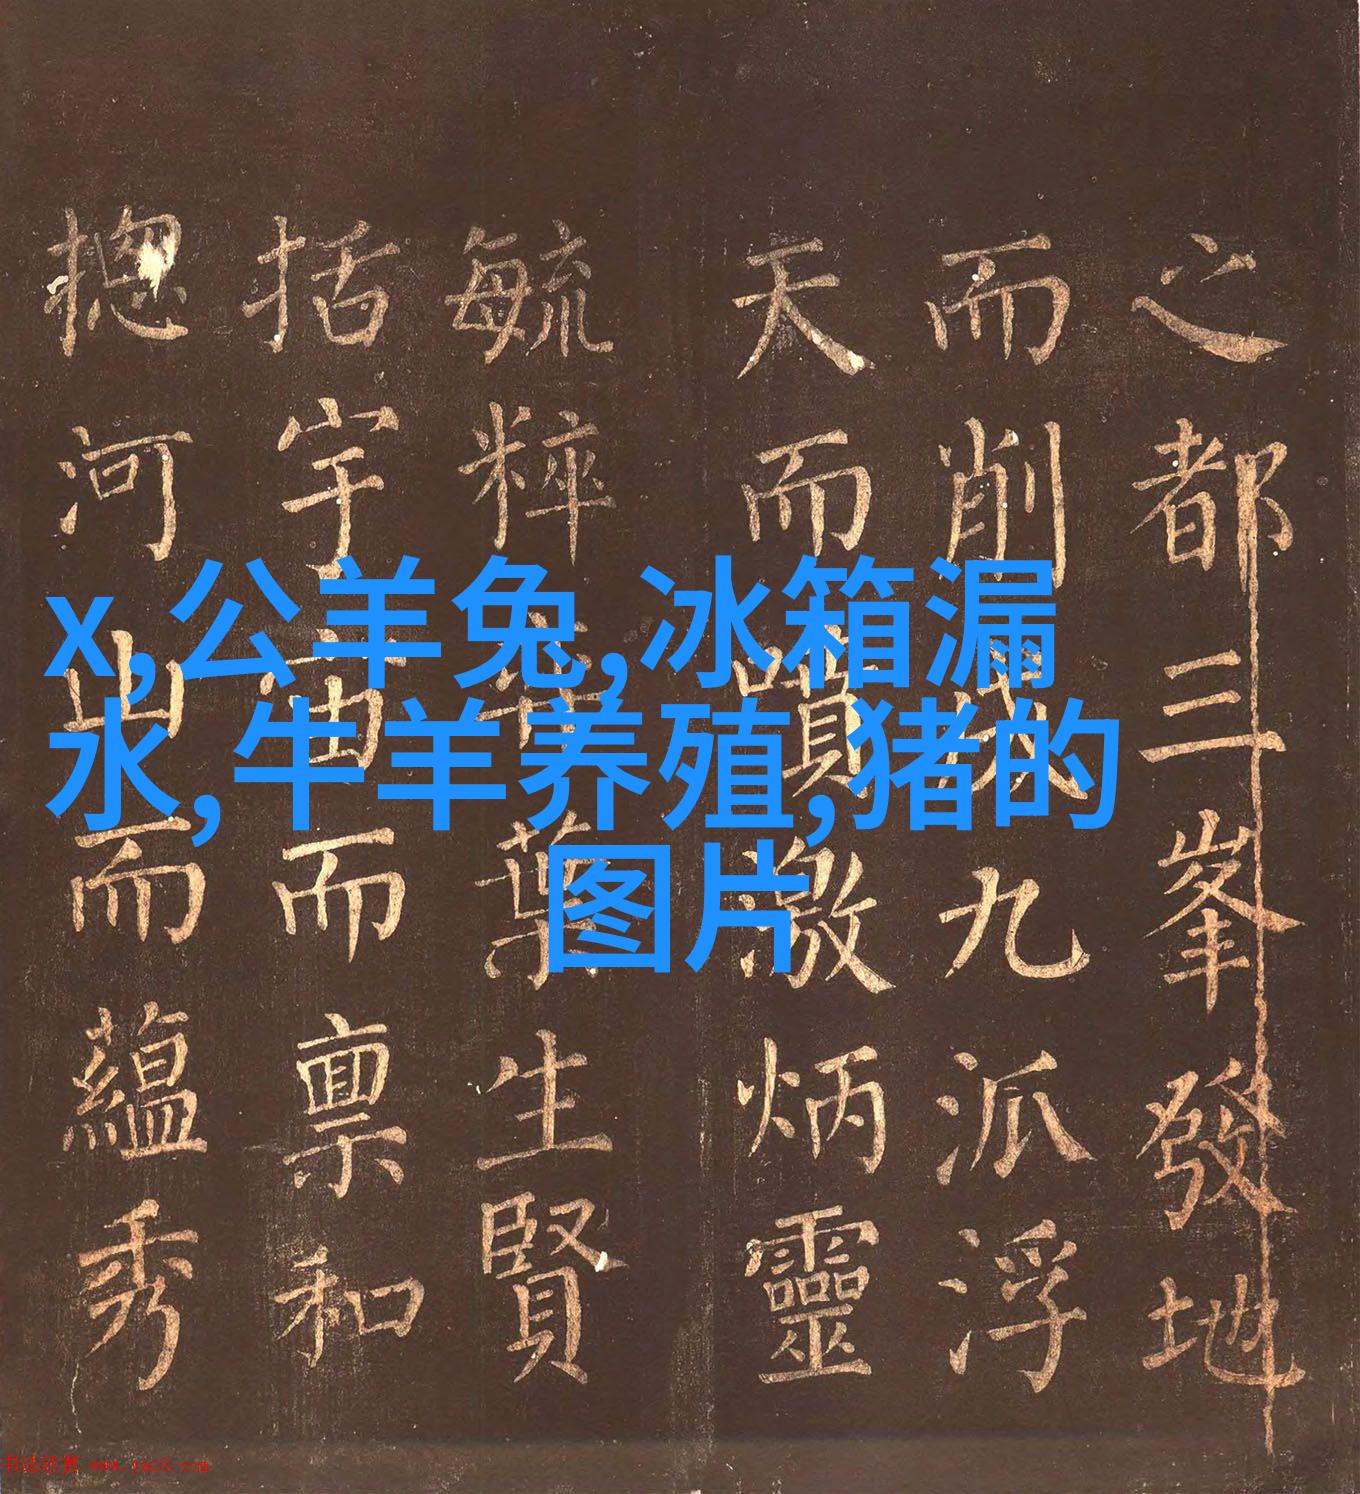 之都三峯發地
而削成九派浮
天而噴激炳靈
毓粹藥生賢
括宇宙而禀和
揔河山而蘊秀
x,公羊兔,冰箱漏
水,牛羊养殖,猪的
图片
书法欣赏 www.yac8.com